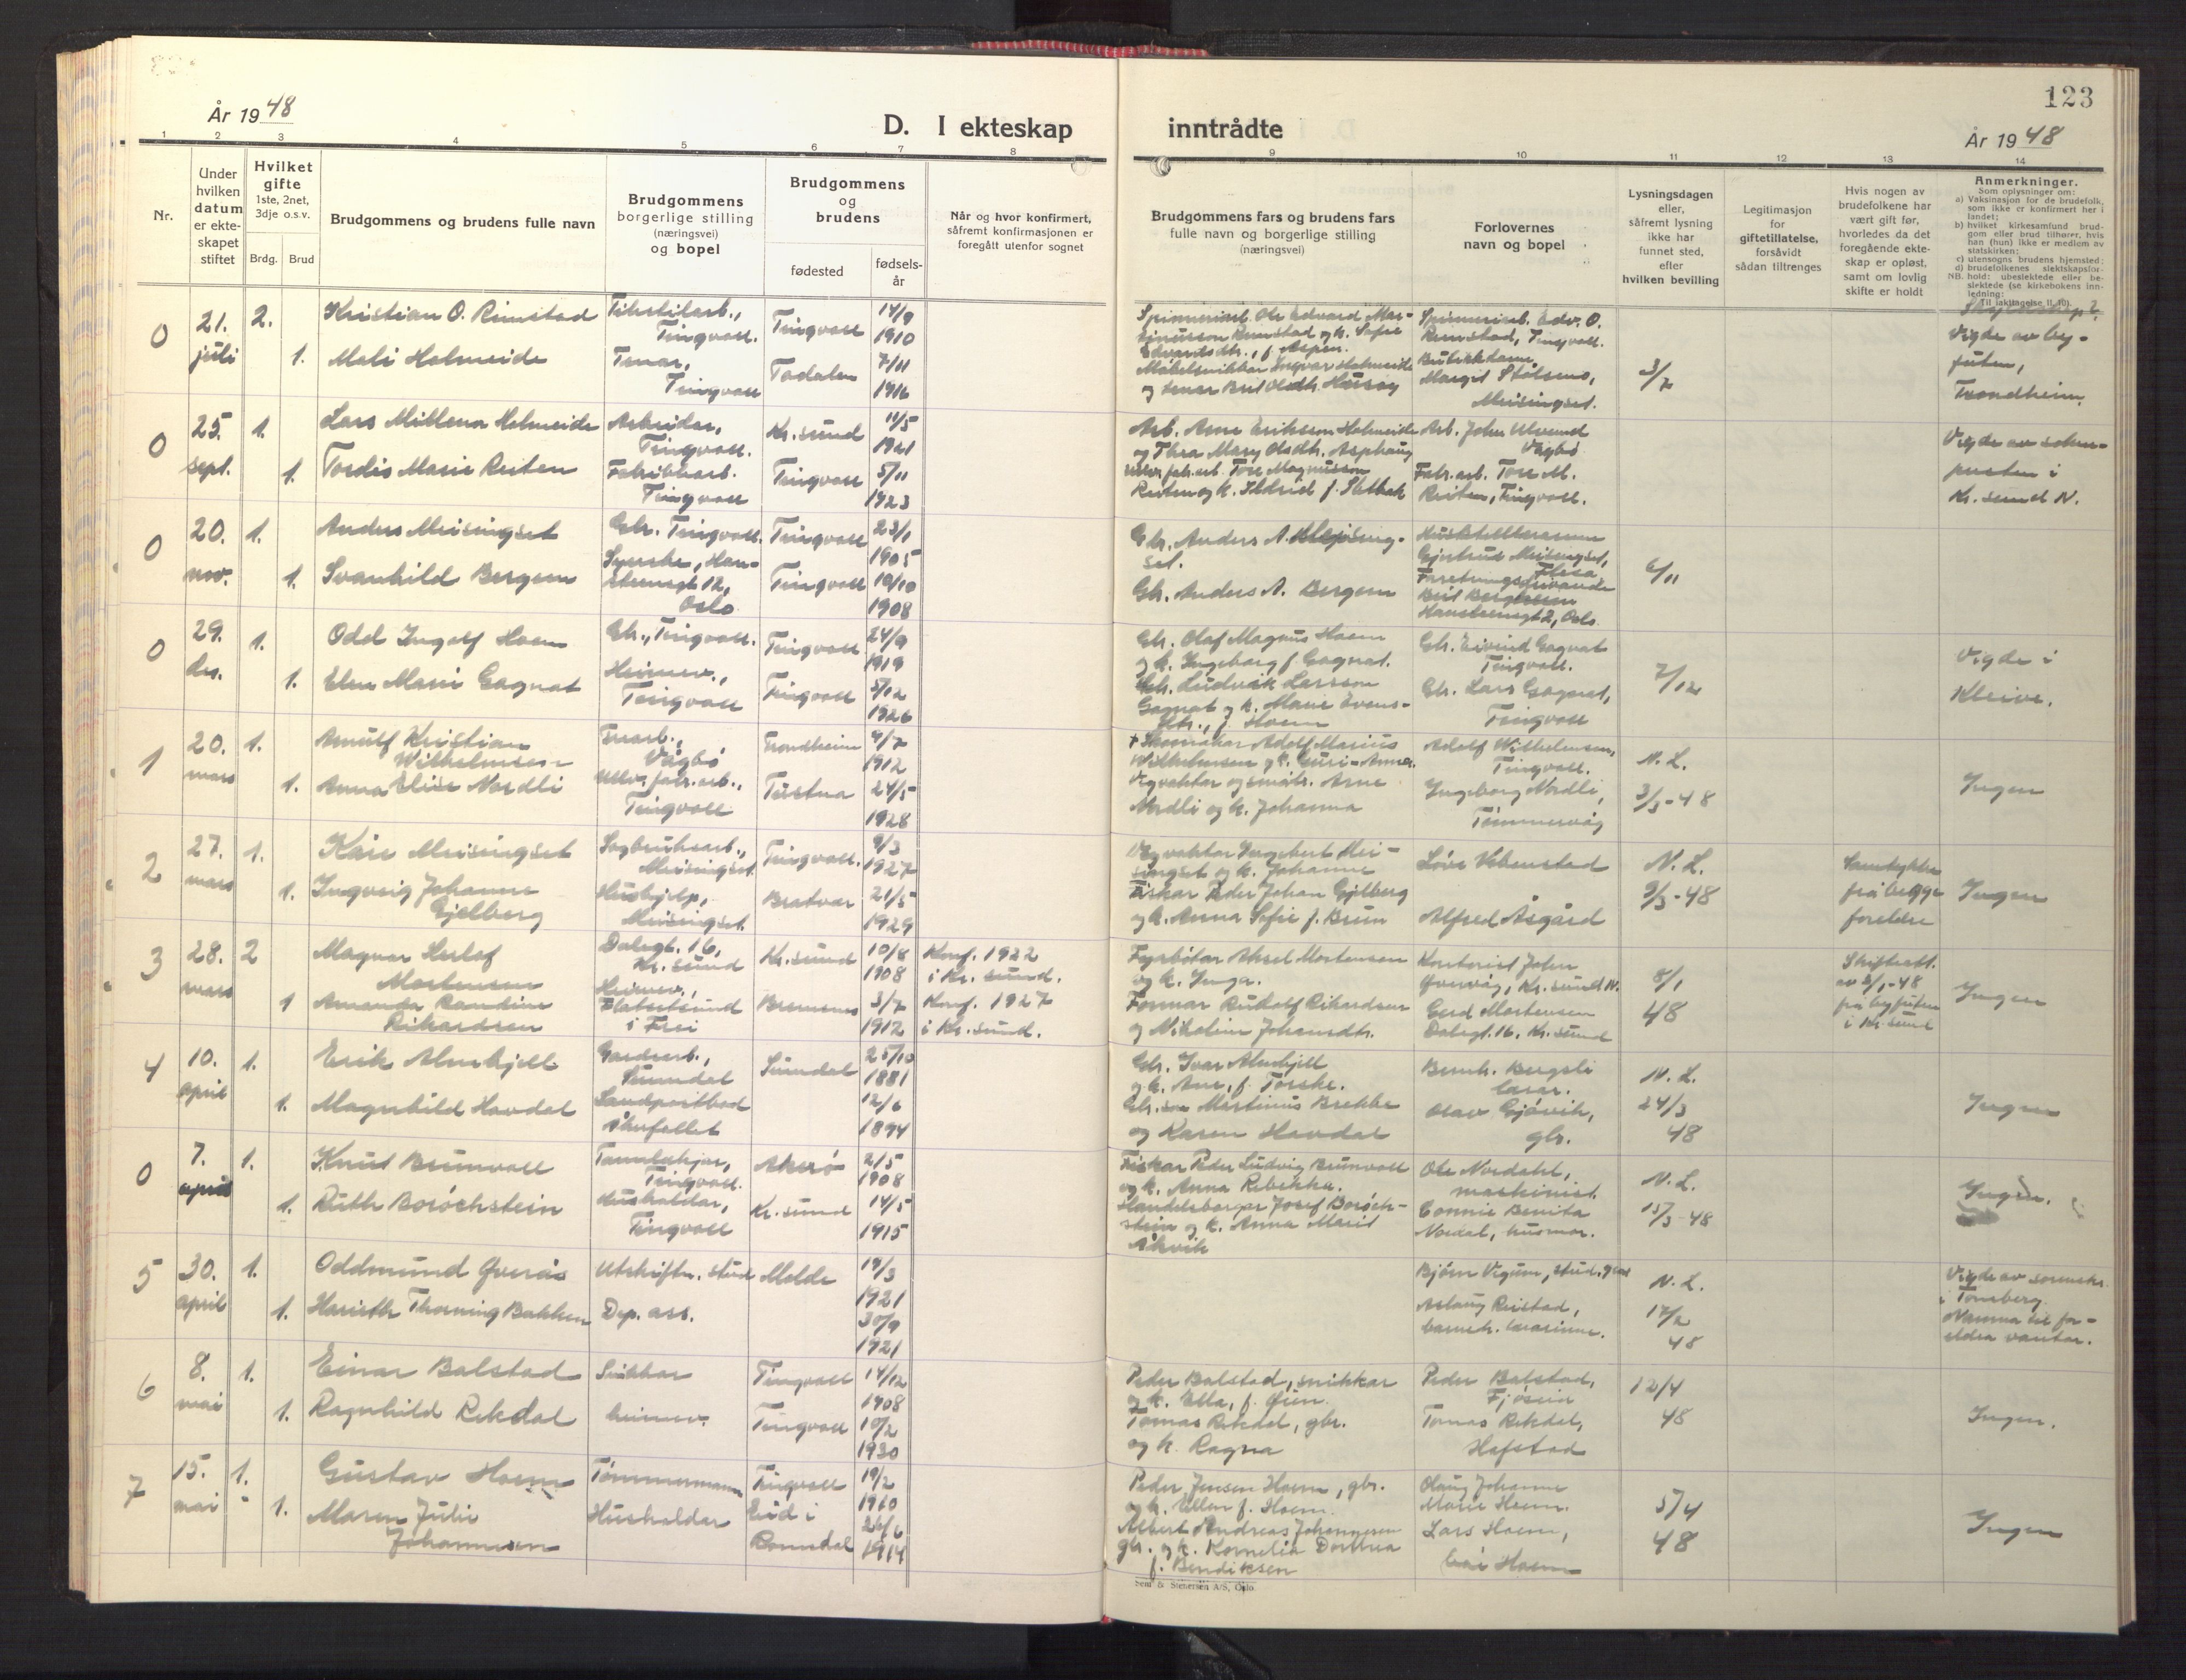 123
År 1948
D. I ekteskap
inntrådte
År 1948
1 2 3 4 5 6 7 8 9 10 11 12 13 14
Nr.
Under
hvilken
datum
er ekte-
skapet
stiftet
Hvilket
gifte
1ste, 2net,
3dje o.s.v.
Brdg. Brud
Brudgommens og brudens fulle navn
Brudgommens
borgerlige stilling
(næringsvei)
og bopel
Brudgommens
og
brudens
fødested
fødsels-
år
Når og hvor konfirmert,
såfremt konfirmasjonen er
foregått utenfor sognet
Brudgommens fars og brudens fars
fulle navn og borgerlige stilling
(næringsvei)
Forlovernes
navn og bopel
Lysningsdagen
eller,
såfremt lysning
ikke har
funnet sted,
efter
hvilken bevilling
Legitimasjon
for
giftetillatelse,
forsåvidt
sådan tiltrenges
Hvis nogen av
brudefolkene har
vært gift før,
hvorledes da det
foregående ekte-
skap er opløst,
samt om lovlig
skifte er holdt
Anmerkninger.
Som oplysninger om:
a) Vaksinasjon for de brudefolk,
som ikke er konfirmert her i
landet;
b) hvilket kirkesamfund brud-
gom eller brud tilhører, hvis
han (hun) ikke er medlem av
statskirken;
c) utensogns brudens hjemsted;
d) brudefolkenes slektskapsfor-
NB. hold: ubeslektede eller be-
slektede (se kirkebokens inn-
ledning:
Til iakttagelse II, 10).
0 21. juli 2. Kristian O. Rimstad
Tingvoll.
Tingvoll
14/9
1910
1. Mali Holmeide
Tingvoll
Todalen
7/11
1916
Rimstad, Tingvoll.
Meisingset.
3/7
Vigde av by-
futen,
Trondheim.
0 25. sept. 1. Lars Holmeide
Arbeidar,
Tingvoll.
Kr.sund
11/5
1921
1. Tordis Marie Reiten
Fabrikkarb.
Tingvoll
Tingvoll
5/11
1923
Arb. Arne Eriksson Holmeide
Arb. John Ulvund
Vågbø
Fabr.arb. Tore M.
Reiten, Tingvoll.
Vigde av soren-
Kr.sund N.
0 20. nov. 1. Anders Meisingset
Gbr. Tingvoll.
Tingvoll
23/1
1905
1. Svanhild Bergem
Oslo
Tingvoll
10/10
1908
Gbr. Anders A. Meising-
set.
Gbr. Anders A. Bergem
Gjertrud Meisingset,
6/11
0 29. des. 1. Odd Ingolf Hoem
Gbr., Tingvoll.
Tingvoll
24/9
1919
1. Elen Marie Gagnat
Heimev.,
Tingvoll
Tingvoll
5/12
1926
Gbr. Olaf Magnus Hoem
og k. Ingeborg f. Gagnat.
Gbr. Ludvik Larsson
Gagnat og k. Marie Evens-
dtr., f. Hoem
Gbr. Eivind Gagnat
Tingvoll.
Gbr. Lars Gagnat,
Tingvoll
7/12
Vigde i
Kleive.
1 20. mars 1. Arnulf Kristian
Wilhelmsen
Vågbø
Trondheim
9/7
1912
1. Anna Elise Nordli
Ullv. fabr.arb.,
Tingvoll
Tustna
24/5
1928
Skomakar Adolf Marius
Wilhelmsen og k. Guri-Anna.
Nordli og k. Johanna
Adolf Wilhelmsen,
Tingvoll.
Ingeborg Nordli,
Tømmervåg
N. L.
3/3-48
Ingen
2 27. mars 1. Kåre Meisingset
Sagbruksarb.,
Meisingset.
Tingvoll.
9/3
1927
1. Ingveig Johanne
Gjelberg
Hushjelp,
Meisingset
Bratvær
21/5
1929
Vegvaktar Ingebert Mei-
singset og k. Johanne
Fiskar Peder Johan Gjelberg
og k. Anna Sofie f. Brun
Alfred Åsgård
N. L.
9/3-48
Samtykke
frå begge
foreldre
Ingen
3 28. mars 2 Magnar
Mortensen
Dalegt. 16,
Kr.sund
Kr.sund
10/8
1908
Konf. 1922
i Kr.sund.
1 Amanda Randine
Rikardsen
Heimev.,
Flatsetsund
i Frei
Bremsnes
3/7
1912
Konf. 1927
i Kr.sund.
Fyrbøtar Aksel Mortensen
og k. Inga.
Formar Rudolf Rikardsen
og Nikoline Johansdtr.
Kontorist John
Kr.sund N.
Gerd Mortensen
Dalegt. 16, Kr.sund
8/1
48
Skifteatt.
av 3/1-48
frå byfuten
i Kr.sund
Ingen
4 10. april 1. Erik Almskjell
Gardsarb.,
Sunndal
Sunndal
25/10
1881
1. Magnhild Hovdal
Landpostbod
12/6
1894
Gbr. Ivar Almskjell
og k. Ane, f. Torske.
Martinus Brekke
og Karen Hovdal
Bernh. Bergsli
lærar.
Olav Gjøvik,
gbr.
N. L.
24/3
48
Ingen
0 7. april 1. Knut Brunvoll
Tannlækjar,
Tingvoll.
Akerø
2/5
1908
1. Ruth Borøchstein
Hushaldar,
Tingvoll
Kr.sund
14/5
1915
Fiskar Peder Ludvig Brunvoll
og k. Anna Rebekka.
Handelsborgar Josef Borøch-
stein og k. Anna Marie
Åkvik
Ole Nordahl,
maskinist.
Connie Benita
Nordal, husmor.
N. L.
15/3-48
Ingen.
5 30. april 1. Oddmund Øverås
Utskiftn. stud
Molde
19/3
1921
1. Thorning Bakken
Dep. ass.
30/9
1921
Bjørn Vigum,
Aslaug Reistad,
N. L.
17/2
48
Vigde av sorenskr.
i Tønsberg.
Namna til for-
eldra vantar.
6 8. mai 1. Einar Bolstad
Snikkar
Tingvoll
14/12
1908
1. Ragnhild Rekdal
heimev.
Tingvoll
10/2
1930
Peder Bolstad, snikkar
og k. Ella, f. Øien.
Tomas Rekdal, gbr.
og k. Ragna
Peder Bolstad,
Fjøseid
Tomas Rekdal,
Hafstad
12/4
48
Ingen.
7 15. mai 1. Gustav Hoem
Tømmermann
Tingvoll
19/2
1910
1. Maren Julie
Johannesen
Hushaldar
Eid i
Romsdal
26/6
1914
Peder Jensen Hoem, gbr.
og k. Ellen f. Hoem.
Albert Andreas Johannesen
gbr. og k. Kornelia Dorthea
f. Bendiksen
Olaug Johanne
Marie Hoem.
Lars Hoem,
5/4
48
Ingen
Sem & Stenersen A/S, Oslo.